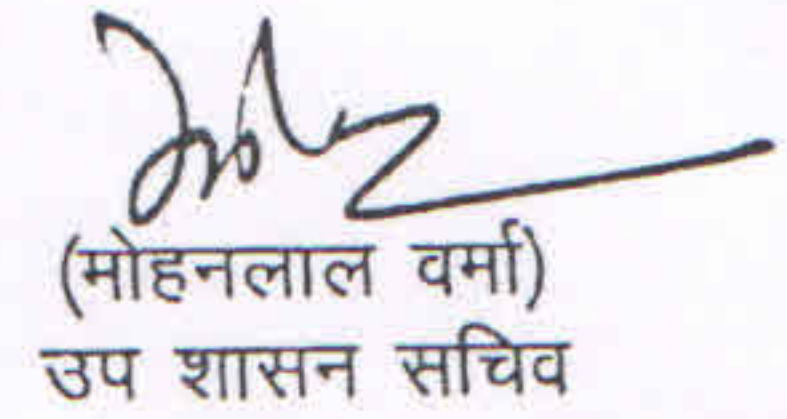 (मोहनलाल वर्मा)
उप शासन सचिव